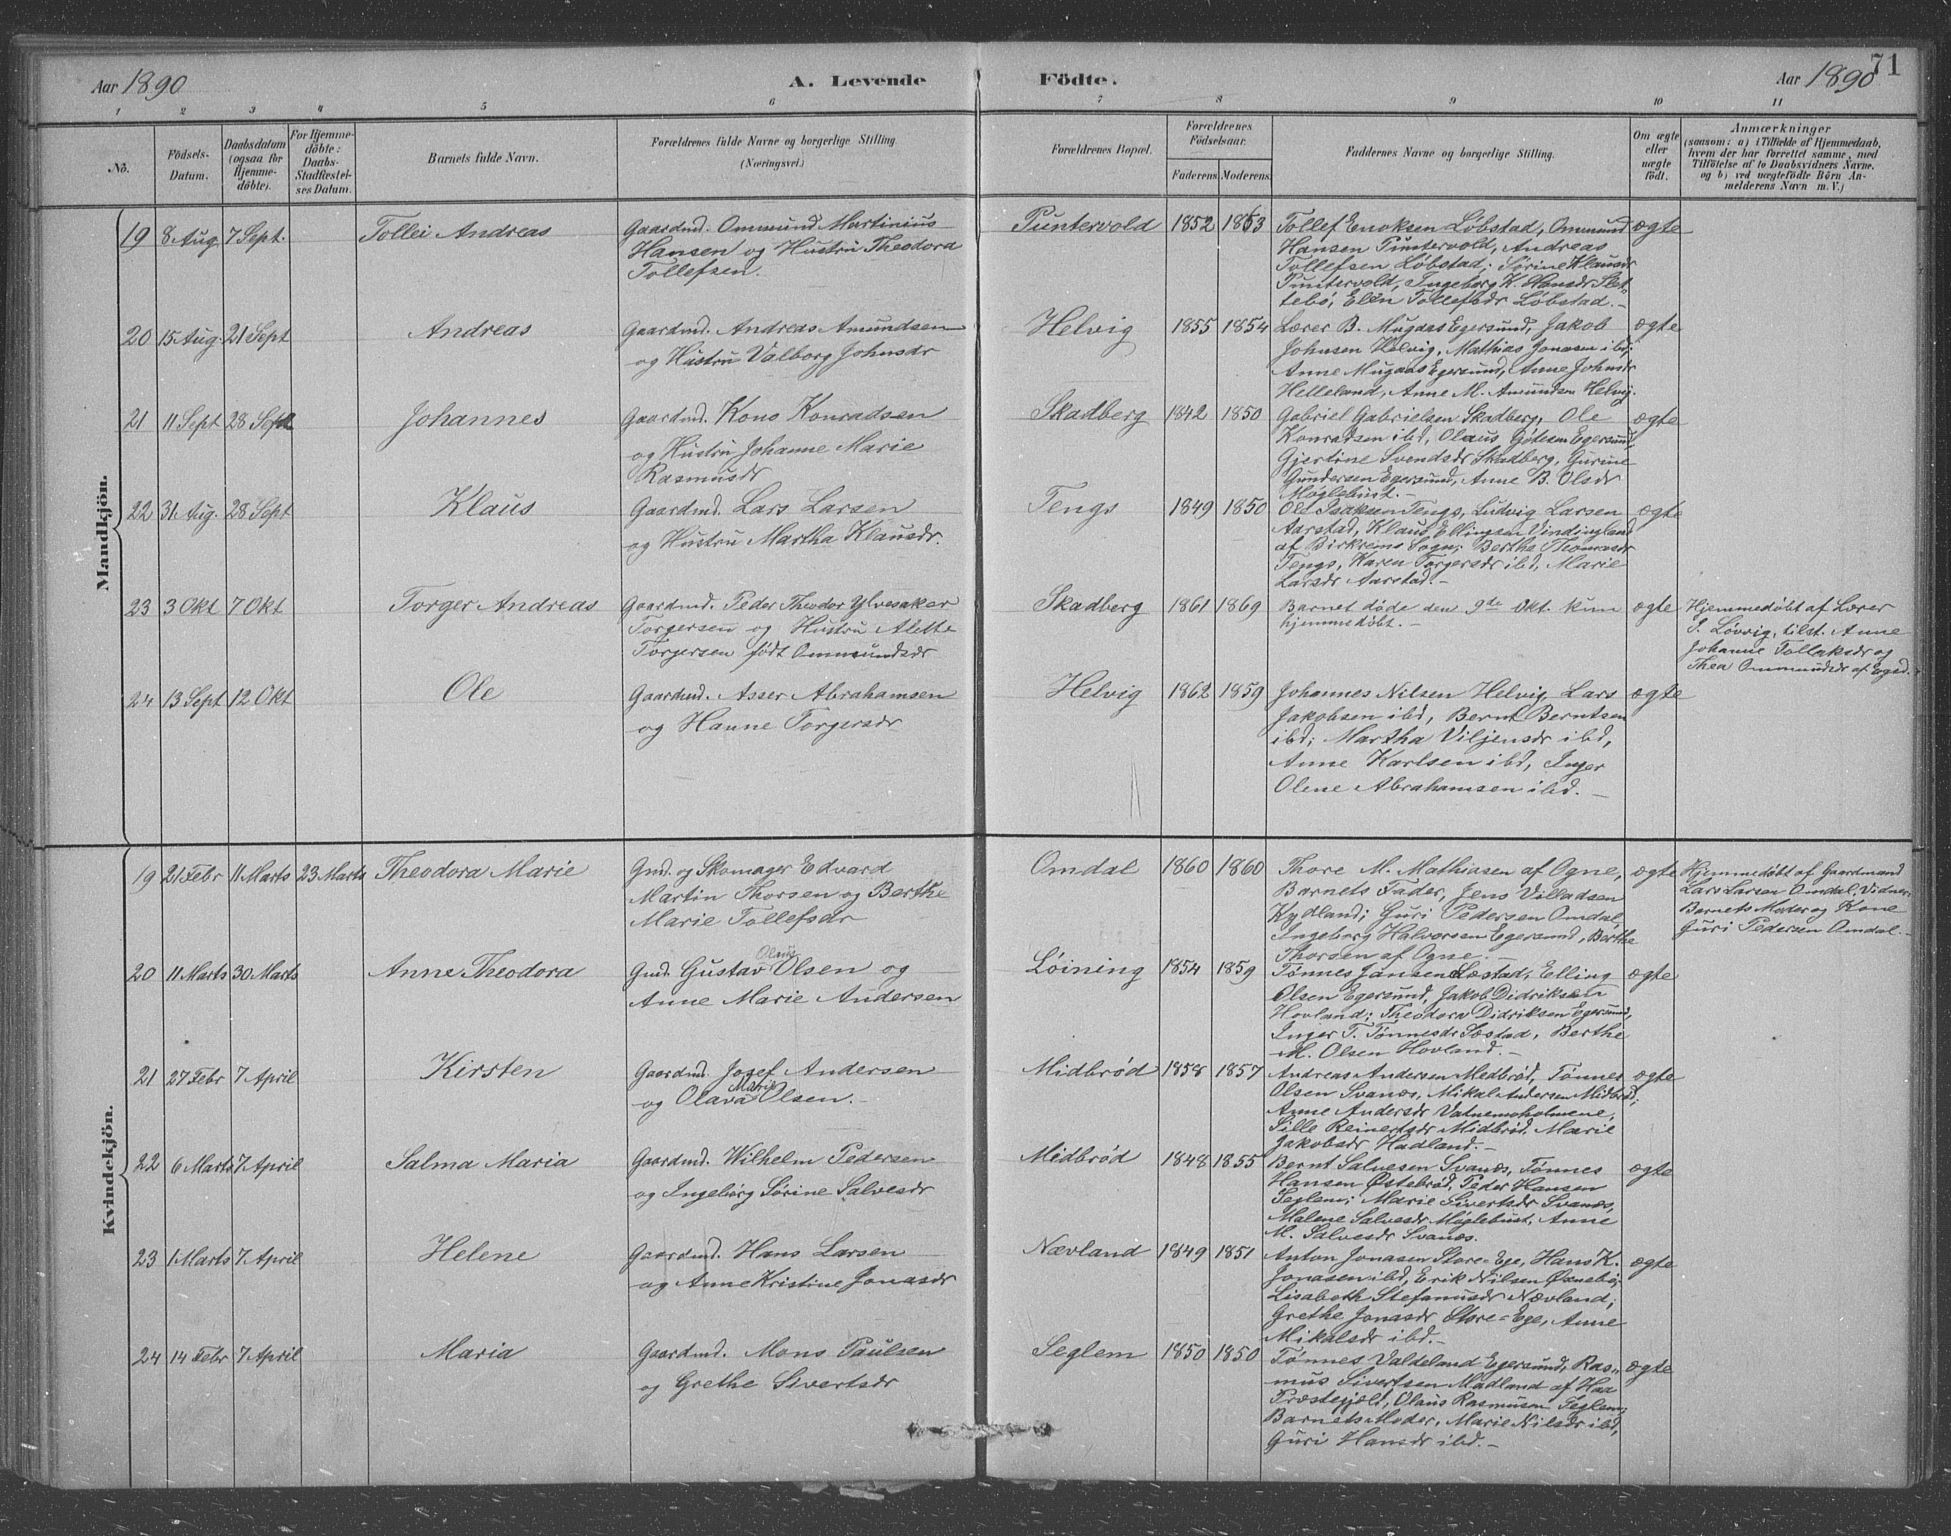 71
Aar 1890
A. Levende Födte.
Aar 1890
1 2 3 4 5 6 7 8 9 10 11
No.
Födsels-Datum.
Daabsdatum (ogsaa for Hjemme-döbte).
For Hjemme-döbte: Daabs-Stadfæstel-ses Datum.
Barnets fulde Navn.
Forældrenes fulde Navne og borgerlige Stilling (Næringsvei.)
Forældrenes Bopæl.
Forældrenes Födselsaar.
Faderens.
Moderens.
Faddernes Navne og borgerlige Stilling.
Om ægte eller uægte födt.
Anmærkninger
(saasom: a) i Tilfælde af Hjemmedaab,
hvem der har forrettet samme, med
Tilföielse af to Daabsvidners Navne.
og b) ved uægtefödte Börn An-
melderens Navn m. V.)
Mandkjön.
19 8 Aug. 7 Sept. Tollei Andreas
Gaardmd. Ommund Martinius
Hansen og Hustru Theodora
Tollefsen.
Puntervold 1852 1863
Tollef Enoksen Løbstad, Ommund
Hansen Puntervold, Andreas
Tollefsen Løbstad; Sørine Klausdr
Puntervold, Ingeborg K. Hansdr Slet-
tebö, Elen Tollefsdr Løbstad.
ægte
20 15 Aug. 21 Sept Andreas
Gaardmd. Andreas Amundsen
og Hustru Valborg Johnsdr
Helvig 1855 1854
Lærer B. Mugaas Egersund, Jakob
Johnsen Helvig, Mathias Jonasen ibd;
Anne Mugaas Egersund, Anne Johnsdr
Helleland, Anne M. Amundsen Helvig.
ægte
21 11 Sept 28 Sept Johannes
Gaardmd. Kons Konradsen
og Hustru Johanne Marie
Rasmusdr
Skadberg 1842 1850
Gabriel Gabrielsen Skadberg, Ole
Konradsen ibd, Olaus Gjøtesen Egersund,
Gjertine Svendsdr Skadberg, Gurine
Gundersen Egersund, Anne B. Olsdr
Møglebust.
ægte
22 31 Aug. 28 Sept Klaus
Gaardmd. Lars Larsen
og Hustru Martha Klausdr.
Tengs 1849 1850
Ole Isaksen Tengs, Ludvig Larsen
Aarstad, Klaus Ellingsen Vindingland
af Birkrems Sogn; Berthe Thomasdr
Tengs, Karen Torgersdr ibd, Marie
Larsdr Aarstad.
ægte
23 3 Okt 7 Okt Torger Andreas
Gaardmd. Peder Theodor Ylvesaker
Torgersen og Hustru Alette
Torgersen født Ommundsdr
Skadberg 1861 1869
Barnet døde den 9de Okt. kun
hjemmedøbt.
ægte
Hjemmedøbt af Lærer
J. Løvvig, tilst. Anne
Johanne Tollaksdr og
Thea Ommundsdr af Egsd.
24 13 Sept 12 Okt Ole
Gaardmd. Asser Abrahamsen
og Hanne Torgersdr
Helvig 1862 1859
Johannes Nilsen Helvig, Lars
Jakobsen ibd, Bernt Berntsen
ibd; Martha Viljensdr ibd,
Anne Karlsen ibd, Inger
Olene Abrahamsen ibd.
ægte
Kvindekjön.
19 21 Febr 11 Marts 23 Marts Theodora Marie
Gmd. og Skomager Edvard
Martin Thorsen og Berthe
Marie Tollefsdr
Omdal 1860 1860
Thore M. Mathiasen af Ogne,
Barnets Fader, Jens Villadsen
Kydland; Guri Pedersen Omdal,
Ingeborg Halvorsen Egersund, Berthe
Thorsen af Ogne.
ægte
Hjemmedøbt af Gaardmand
Lars Larsen Omdal, Vidner
Barnets Moder og Kone
Guri Pedersen Omdal.
20 11 Marts 30 Marts Anne Theodora
Olaus
Gmd. Gustav Olsen og
Anne Marie Andersen
Løining 1854 1859
Tønnes Jansen Sæstad, Elling
Olsen Egersund, Jakob Didriksen
Hovland; Theodora Didriksen Egersund,
Inger T. Tønnesdr Sæstad, Berthe
M. Olsen Hovland.
ægte
21 27 Febr 7 April Kirsten
Gaardmd. Josef Andersen
Marie
og Olava Olsen.
Midbrød 1858 1857
Andreas Andersen Medbrød, Tønnes
Olsen Svanes, Mikal Andersen Midbrød;
Anne Andersdr Vatnemoholmene,
Sille Reinertsdr Midbrød, Marie
Jakobsdr Hadland.
ægte
22 6 Marts 7 April Salma Maria
Gaardmd. Wilhelm Pedersen
og Ingeborg Sørine Salvesdr
Midbrød 1848 1855
Bernt Salvesen Svanes, Tønnes
Hansen Østebrød, Peder Hansen
Seglem; Marie Sivertsdr Svanes,
Malene Salvesdr Møglebust, Anne
M. Salvesdr Svanes.
ægte
23 1 Marts 7 April Helene
Gaardmd. Hans Larsen
og Anne Kristine Jonasdr
Nævland 1849 1851
Anton Jonasen Store-Ege, Hans K.
Jonasen ibd, Erik Nilsen Øxnebö;
Lisabeth Stefanusdr Nævland;
Grethe Jonasdr Store-Ege, Anne
Mikalsdr ibd.
ægte
24 14 Febr 7 April Maria
Gaardmd. Mons Paulsen
og Grethe Sivertsdr
Seglem 1850 1850
Tønnes Valteland Egersund, Ras-
mus Sivertsen Madland af Haa
Præstegjeld, Olaus Rasmusen Seglem;
Barnets Moder, Marie Nilsdr ibd,
Guri Hansdr ibd.
ægte